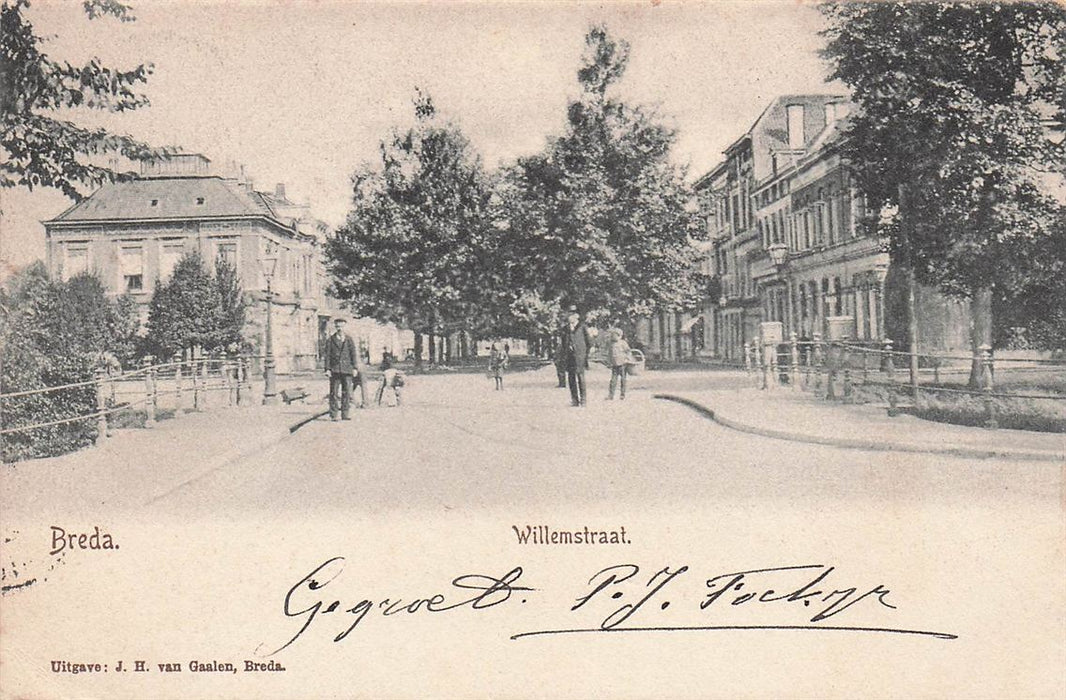 Breda.
Willemstraat.
Gegroet. P. J.
Uitgave: J. H. van Gaalen, Breda.